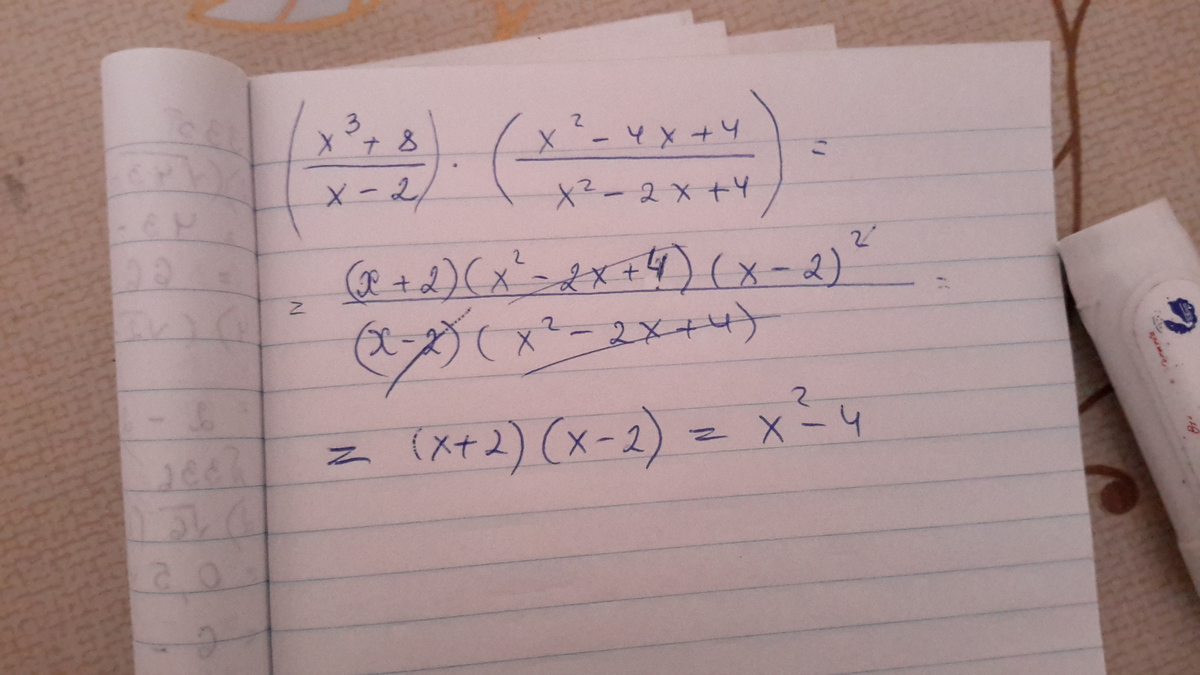 (x³ + 8 / x - 2) · (x² - 4x + 4 / x² - 2x + 4) =
= (x + 2)(x² - 2x + 4)(x - 2)² / (x - 2)(x² - 2x + 4) =
= (x + 2)(x - 2) = x² - 4